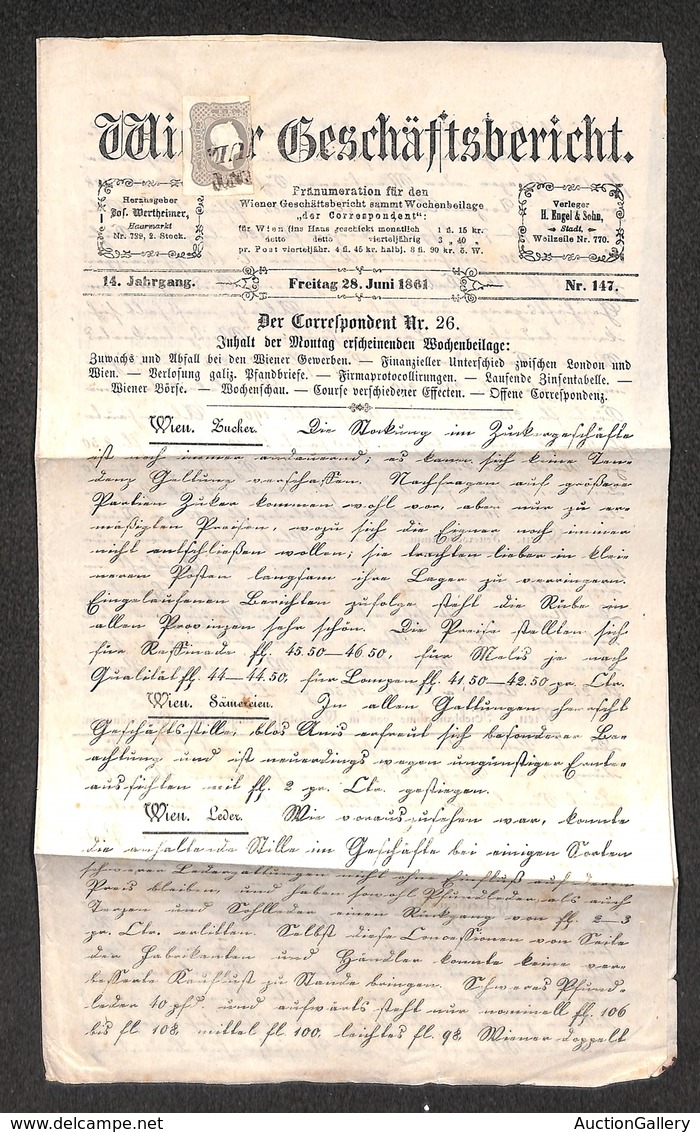 Wi r Geschäftsbericht.
Herausgeber
Jos. Wertheimer,
Haarmarkt
Nr. 729, 2. Stock.
Pränumeration für den
Wiener Geschäftsbericht sammt Wochenbeilage
„der Correspondent“:
für Wien (ins Haus geschickt monatlich 1 fl. 15 kr.
detto detto vierteljährig 3 „ 40 „
pr. Post vierteljähr. 4 fl. 45 kr. halbj. 8 fl. 90 kr. ö. W.
Verleger
H. Engel & Sohn,
Stadt,
Wollzeile Nr. 770.
14. Jahrgang.
Freitag 28. Juni 1861
Nr. 147.
Der Correspondent Nr. 26.
Inhalt der Montag erscheinenden Wochenbeilage:
Zuwachs und Abfall bei den Wiener Gewerben. — Finanzieller Unterschied zwischen London und
Wien. — Verlosung galiz. Pfandbriefe. — Firmaprotocollirungen. — Laufende Zinsentabelle. —
Wiener Börse. — Wochenschau. — Course verschiedener Effecten. — Offene Correspondenz.
Wien. Zucker. Die Stockung im Zuckergeschäfte
ist noch immer andauernd; es kann sich keine Ten-
denz Geltung verschaffen. Nachfragen auf größere
Partien Zuker kommen wohl vor, aber nur zu er-
mäßigten Preisen, wozu sich die Eigner noch immer
nicht entschließen wollen; sie trachten lieber in klei-
neren Posten langsam ihre Lager zu verringern.
Eingelaufenen Berichten zufolge steht die Rübe in
allen Provinzen sehr schön. Die Preise stellten sich
für Raffinade fl. 45.50—46.50, für Melis je nach
Qualität fl. 44—44.50, für Lompen fl. 41.50—42.50 pr. Ctr.
Wien. Sämereien. In allen Gattungen herrscht
Geschäftsstille, blos Anis erfreut sich besonderer Be-
achtung und ist neuerdings wegen ungünstiger Ernte-
aussichten mit fl. 2 pr. Ctr. gestiegen.
Wien. Leder. Wie vorauszusehen war, konnte
die anhaltende Stille im Geschäfte bei einigen Sorten
schwerer Ledergattungen nicht ohne Einfluß auf deren
Preis bleiben, und haben sowohl Pfundleder als auch
Terzen und Sohlleder einen Rückgang von fl. 2—3
pr. Ctr. erlitten. Selbst diese Concessionen von Seite
der Fabrikanten und Händler konnte keine ver-
besserte Kauflust zu Stande bringen. Schweres Pfund-
leder 40 pfd. und aufwärts steht nur nominell fl. 106
bis fl. 108, mittel fl. 100, leichtes fl. 98, Wiener doppelt
AuctionGallery